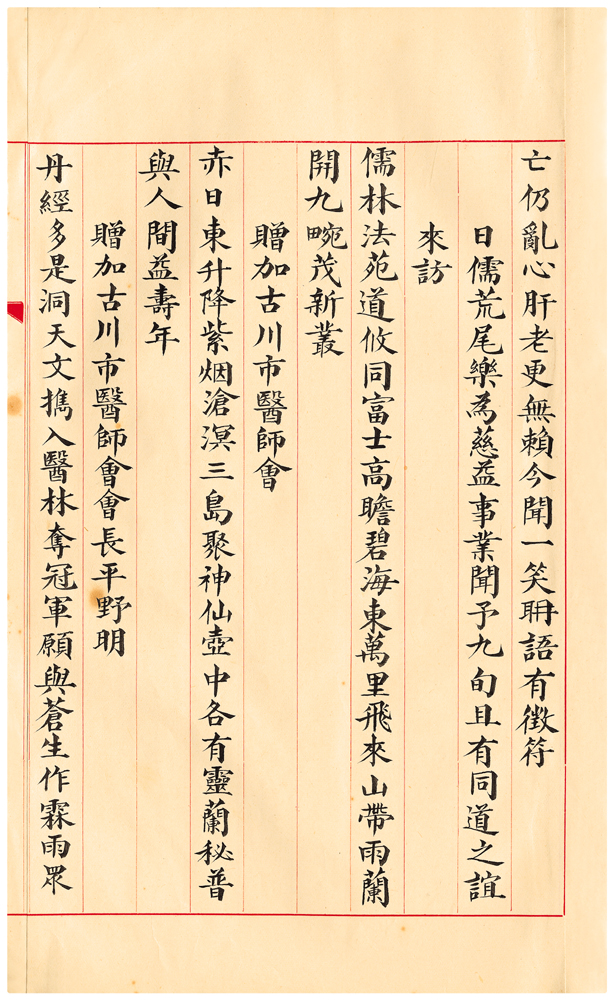 亡仍亂心肝老更無賴今聞一笑聃語有徵符
日儒荒尾樂為慈益事業聞予九旬且有同道之誼
來訪
儒林法苑道攸同富士高瞻碧海東萬里飛來山帶雨蘭
開九畹茂新叢
贈加古川市醫師會
赤日東升降紫烟滄溟三島聚神仙壺中各有靈蘭秘普
與人間益壽年
贈加古川市醫師會會長平野明
丹經多是洞天文擕入醫林奪冠軍願與蒼生作霖雨眾